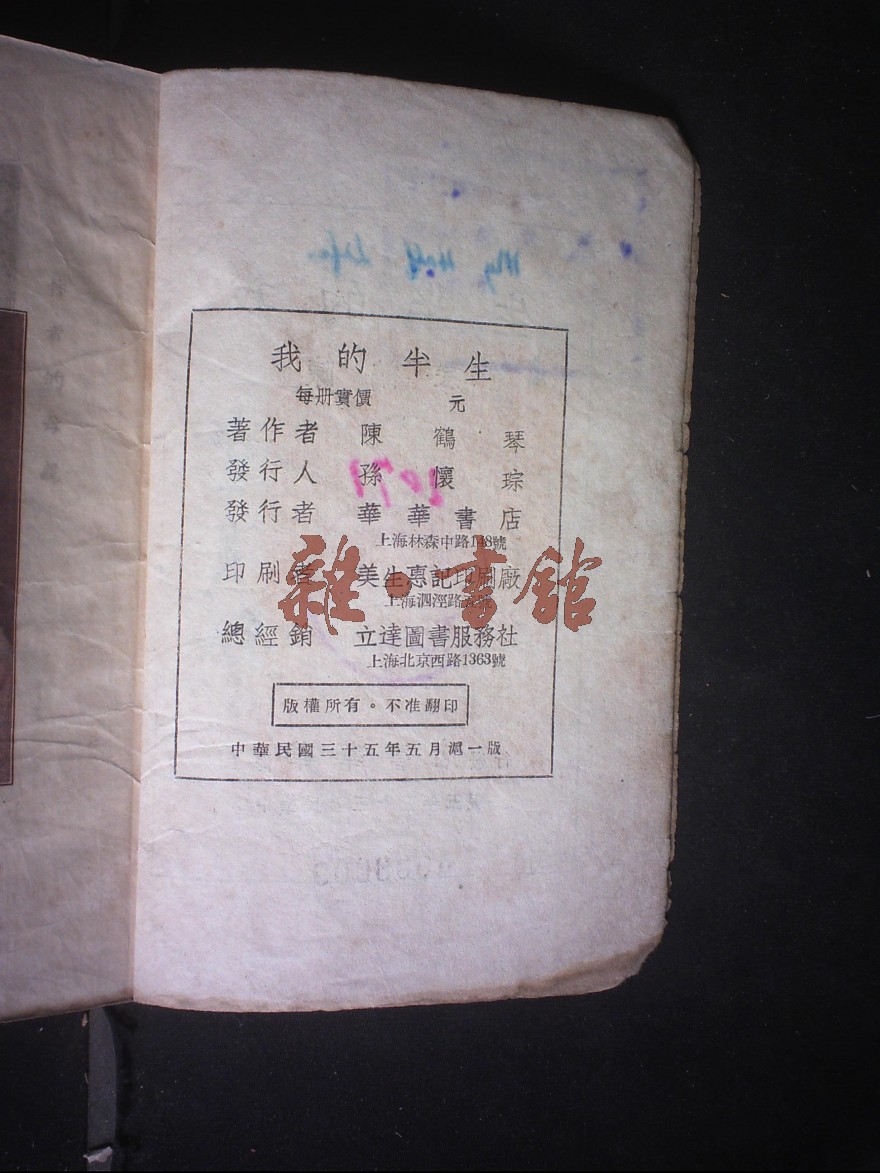 我的半生
每册實價 元
著作者 陳鶴琴
發行人 孫懷琮
發行者 華華書店
上海林森中路148號
印刷者 美生惠記印刷廠
上海泗涇路
總經銷 立達圖書服務社
上海北京西路1363號
版權所有。不准翻印
中華民國三十五年五月滬一版
雜·書館